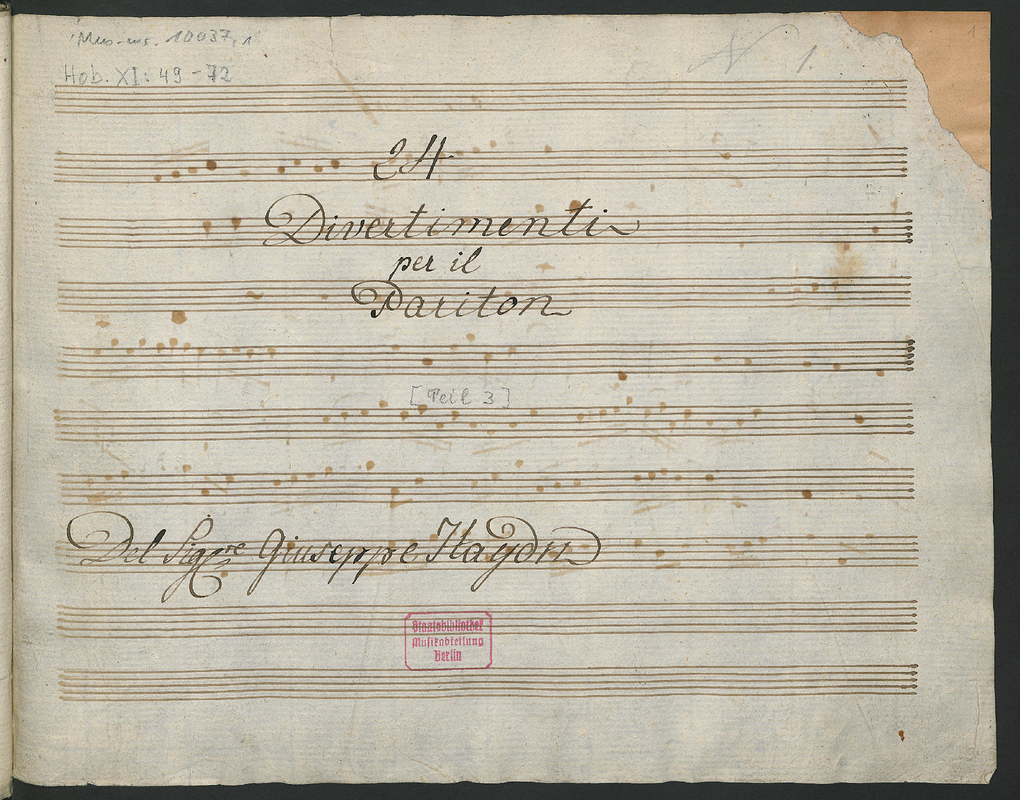 Mus. ms. 10037,1
N 1.
1
Hob. XI: 49-72
24
Divertimenti
per il
Pariton
[Teil 3]
Del Sigre Giuseppe Haydn
Staatsbibliothek
Musikabteilung
Berlin